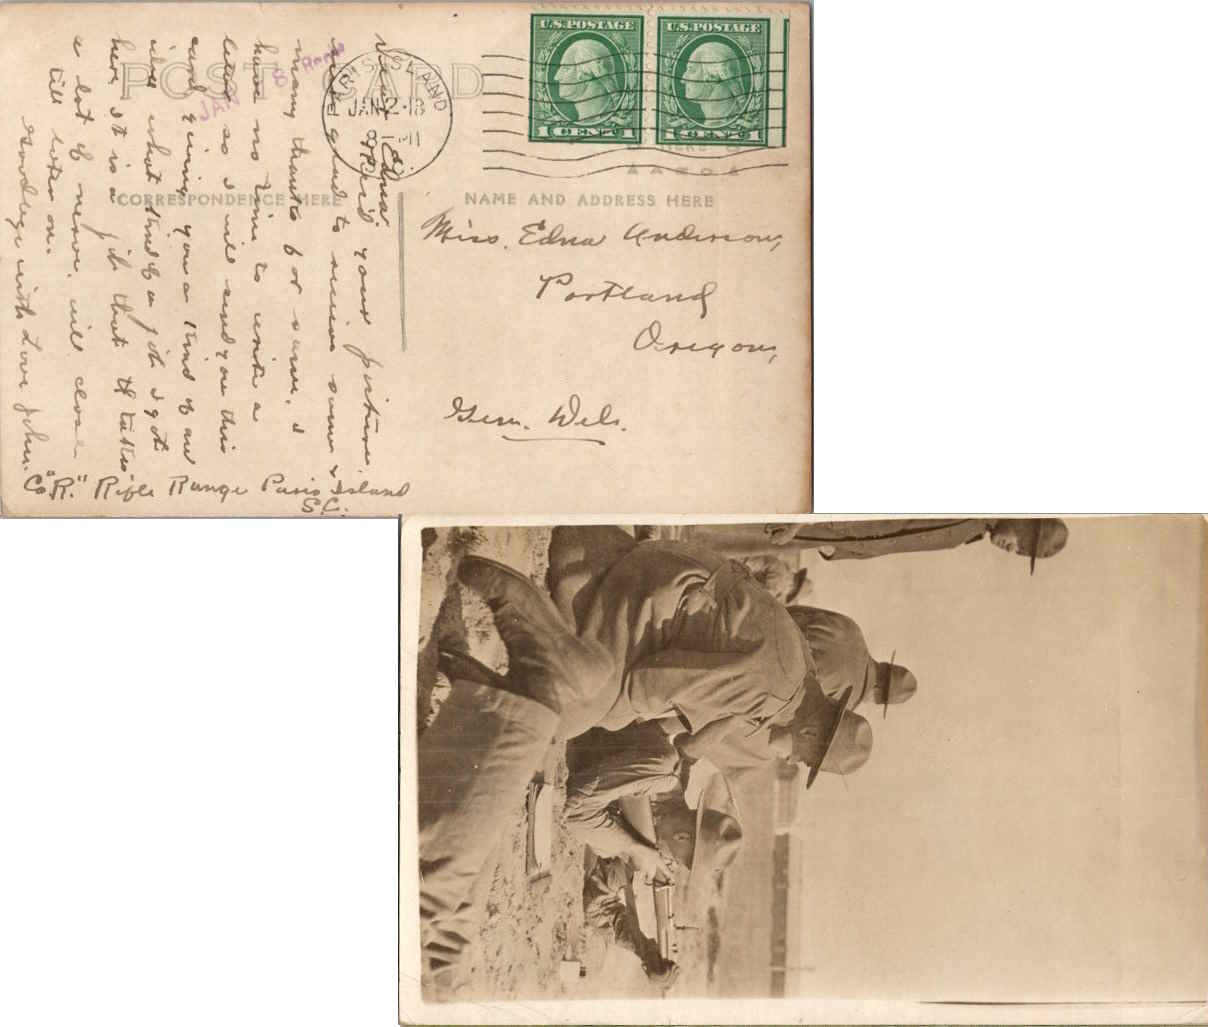 POST CARD
CORRESPONDENCE HERE
NAME AND ADDRESS HERE
PARIS ISLAND
JAN 2 · 18
U.S. POSTAGE
1 CENT 1
U.S. POSTAGE
1 CENT 1
HERE
JAN 8 Recd
Miss. Edna Anderson,
Portland
Oregon,
Gen. Del.
Dear Edna.
Rec'd your picture
was glad to receive same &
many thanks for same. I
have no time to write a
letter so I will send you this
card giving you a kind of an
idea what kind of a job I got
here it is a job that takes
a lot of nerve. will close
till later on.
Goodbye with Love John.
Co "R." Rifle Range Paris Island
S.C.